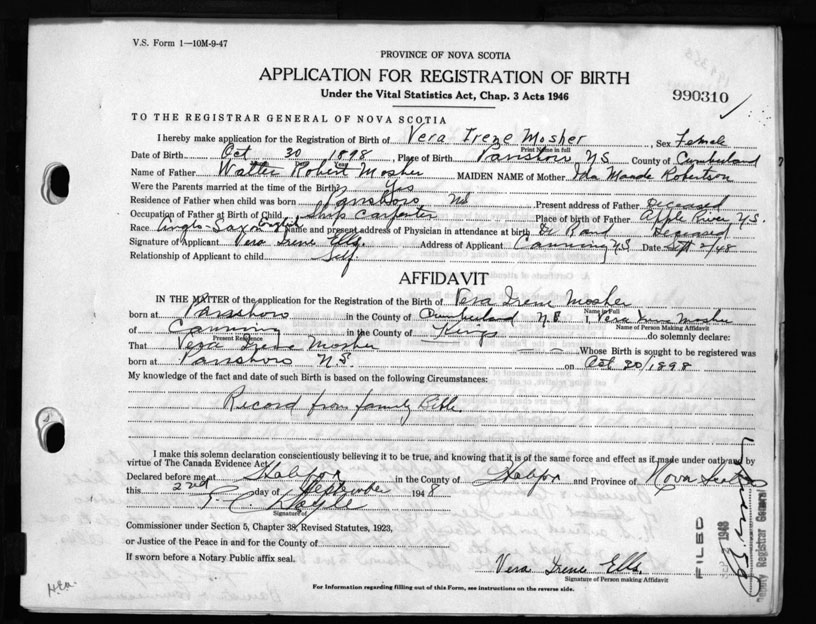 V.S. Form 1—10M-9-47
PROVINCE OF NOVA SCOTIA
APPLICATION FOR REGISTRATION OF BIRTH
Under the Vital Statistics Act, Chap. 3 Acts 1946
990310
TO THE REGISTRAR GENERAL OF NOVA SCOTIA
I hereby make application for the Registration of Birth of Vera Irene Mosher Sex Female
Print Name in full
Date of Birth Oct 30 1898, Place of Birth Parrsboro N.S. County of Cumberland
Name of Father Walter Robert Mosher MAIDEN NAME of Mother Ida Maude Robertson
Were the Parents married at the time of the Birth? Yes
Residence of Father when child was born Parrsboro NS Present address of Father Deceased
Occupation of Father at Birth of Child Ship Carpenter Place of birth of Father Apple River N.S.
Race Anglo-Saxon English Name and present address of Physician in attendance at birth Dr Rand Deceased
Signature of Applicant Vera Irene Ells. Address of Applicant Canning N.S Date Sept 2/48
Relationship of Applicant to child Self.
AFFIDAVIT
IN THE MATTER of the application for the Registration of the Birth of Vera Irene Mosher
Name in Full
born at Parrsboro in the County of Cumberland N.S I, Vera Irene Mosher
Name of Person Making Affidavit
of Canning in the County of Kings do solemnly declare:
Present Residence
That Vera Irene Mosher Whose Birth is sought to be registered was
born at Parrsboro N.S. on Oct 30/1898
My knowledge of the fact and date of such Birth is based on the following Circumstances:
Record from family Bible.
I make this solemn declaration conscientiously believing it to be true, and knowing that it is of the same force and effect as if made under oath and by
virtue of The Canada Evidence Act.
Declared before me at Halifax in the County of Halifax and Province of Nova Scotia
this 2nd day of September 1948
Signature of
Commissioner under Section 5, Chapter 38, Revised Statutes, 1923,
or Justice of the Peace in and for the County of
If sworn before a Notary Public affix seal.
Vera Irene Ells.
Signature of Person making Affidavit
For Information regarding filling out of this Form, see instructions on the reverse side.
FILED
1948
Deputy Registrar General